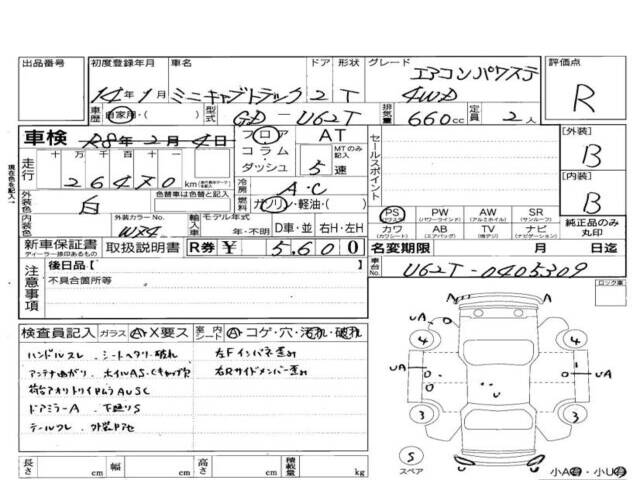 出品番号 初度登録年月 車名 ドア 形状 グレード 評価点
14年1月 ミニキャブトラック 2 T エアコンパワステ 4WD R
車歴 自家用・( ) 型式 GD-U62T 排気量 660cc 定員 2人
車検 R8年2月4日 フロア AT セールスポイント [外装]
走行 コラム MTのみ記入 B
十万 万 千 百 十 ダッシュ 5速
26470 km 冷房 A・C [内装]
外装色 白 色替車は色替と記入 燃料 ガソリン・軽油・( ) B
PS PW AW SR
(パワステ) (パワーウインド) (アルミホイル) (サンルーフ)
内装色 外装カラーNo. 輸入車 モデル年式 D車・並 右H・左H カワ AB TV ナビ 純正品のみ丸印
(カワシート) (エアバッグ) (ナビゲーション)
年・不明
新車保証書 取扱説明書 R券 ¥ 5,600 名変期限 月 日迄
ディーラー捺印あるもの
現在色を記入→
注意事項 後日品【 車台No. U62T-0405309
不具合箇所等 ロック車
検査員記入 ガラス A・X要ス 室内 シート A・コゲ・穴・汚れ・破れ
ハンドルスレ・シートヘタリ・破れ 左Fインパネ歪み
アンテナ曲がり・ホイルAS・Cキャップ欠 右Rサイドメンバー歪み
ドアミラーA・下廻りS
テールワレ・
uA A
4 4
uA uA
3 3
S
スペア
小A・小U
長さ cm 幅 cm 高さ cm 積載量 kg